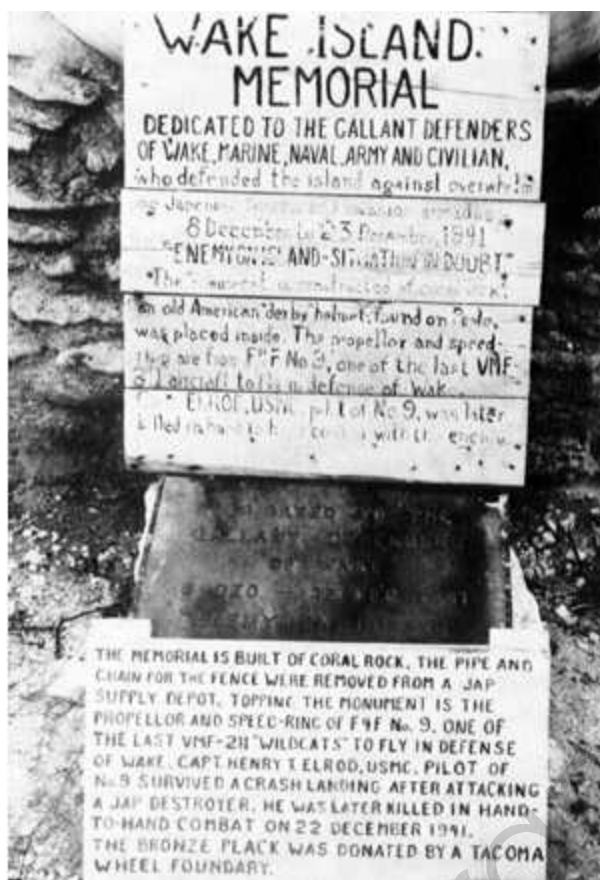 WAKE ISLAND
MEMORIAL
DEDICATED TO THE GALLANT DEFENDERS
OF WAKE, MARINE, NAVAL, ARMY AND CIVILIAN,
who defended the island against overwhelm
8 December to 23 December, 1941
"ENEMY ON ISLAND-SITUATION IN DOUBT."
The
an old American "derby" helmet, found on
was placed inside. The propellor and speed-
ring are from F4F No 9, one of the last VMF-
aircraft to fly in defense of Wake.
ELROD, USMC, pilot of No 9, was later
killed in hand to hand combat with the enemy.
GALLANT
THE MEMORIAL IS BUILT OF CORAL ROCK. THE PIPE AND
CHAIN FOR THE FENCE WERE REMOVED FROM A JAP
SUPPLY DEPOT. TOPPING THE MONUMENT IS THE
PROPELLOR AND SPEED-RING OF F4F No. 9. ONE OF
THE LAST VMF-211 "WILDCATS" TO FLY IN DEFENSE
OF WAKE. CAPT. HENRY T. ELROD, USMC, PILOT OF
No 9 SURVIVED A CRASH LANDING AFTER ATTACKING
A JAP DESTROYER. HE WAS LATER KILLED IN HAND-
TO-HAND COMBAT ON 22 DECEMBER 1941.
THE BRONZE PLACK WAS DONATED BY A TACOMA
WHEEL FOUNDARY.